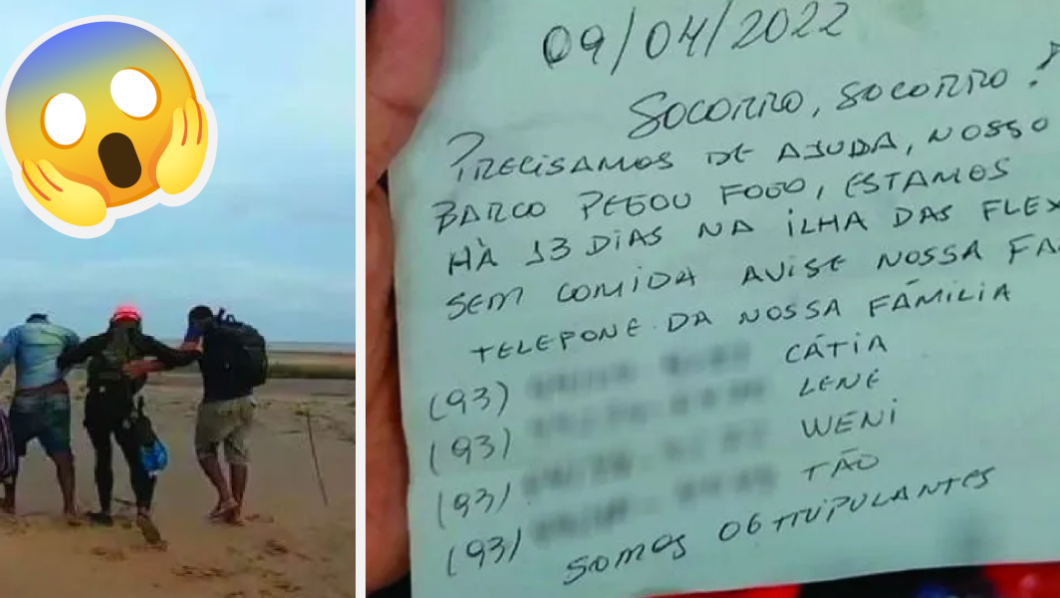 09/04/2022
SOCORRO, SOCORRO!
PRECISAMOS DE AJUDA, NOSSO
BARCO PEGOU FOGO, ESTAMOS
HÀ 13 DIAS NA ILHA DAS FLEX
SEM COMIDA AVISE NOSSA FA
TELEPONE DA NOSSA FÁMILIA
(93) CÁTIA
(93) LENE
(93) WENI
(93) TÃO
SOMOS 06 TRIPULANTES